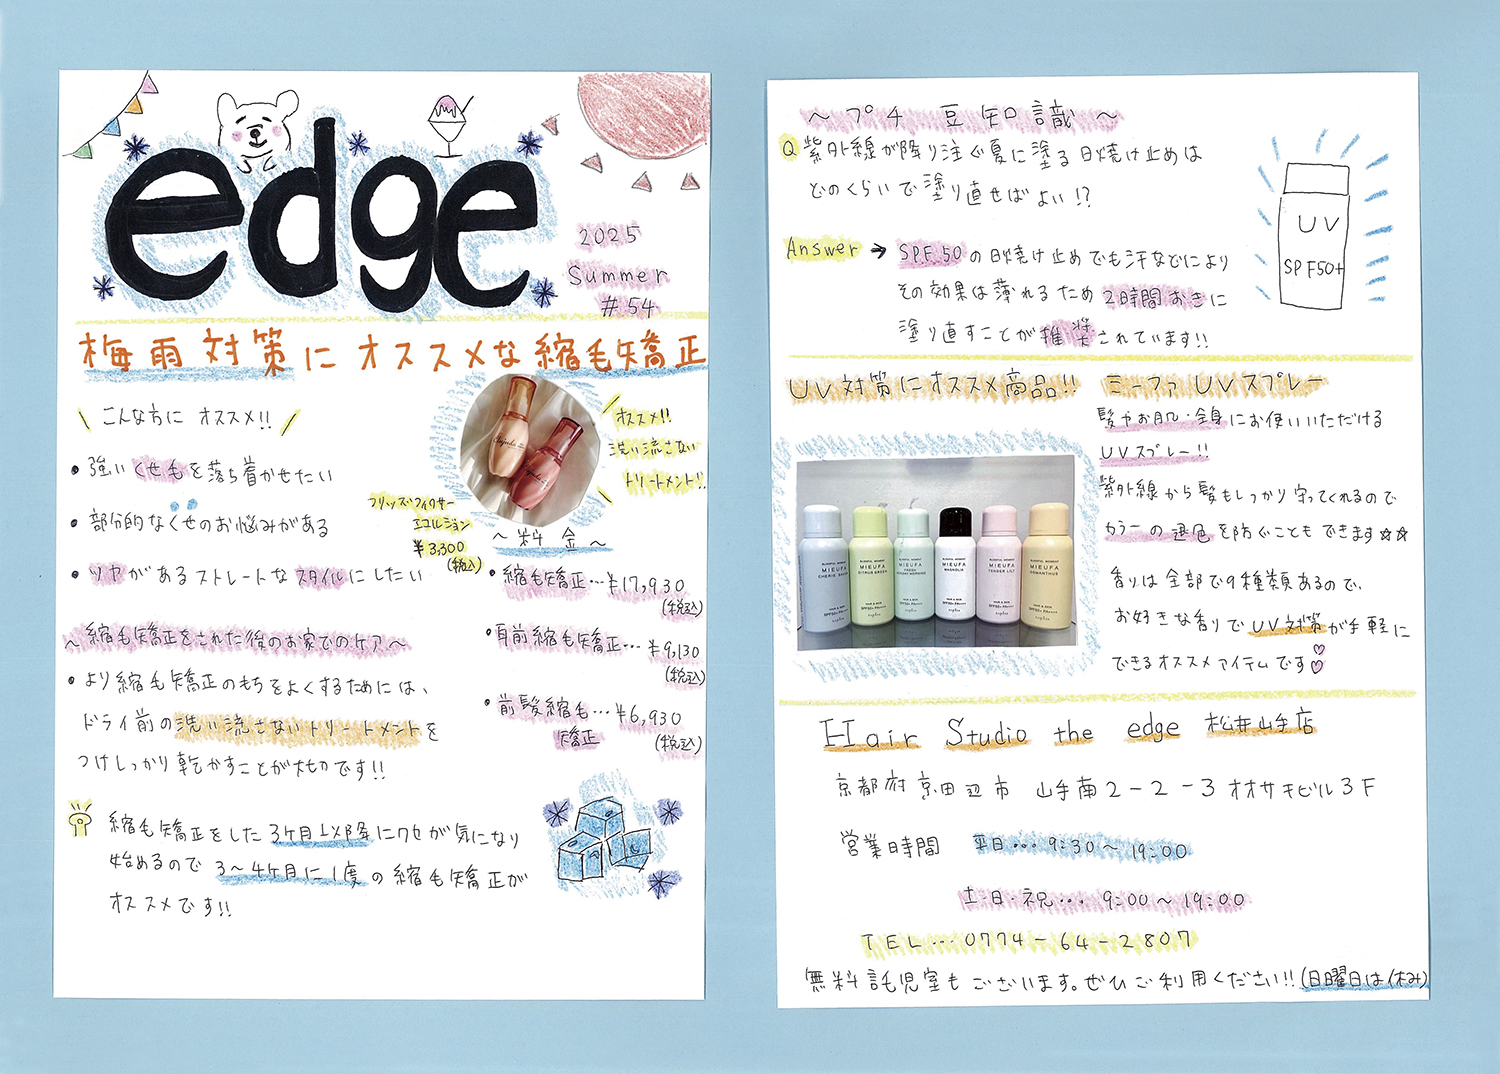 edge
2025
Summer
#54
梅雨対策にオススメな縮毛矯正
\ こんな方に オススメ!! /
• 強いくせ毛を落ち着かせたい
• 部分的なくせのお悩みがある
• ツヤがあるストレートなスタイルにしたい
〜縮毛矯正をされた後のお家でのケア〜
• より縮毛矯正のもちをよくするためには、
ドライ前の洗い流さないトリートメントを
つけしっかり乾かすことが大切です!!
縮毛矯正をした3ヶ月以降にクセが気になり
始めるので 3〜4ヶ月に1度の縮毛矯正が
オススメです!!
オススメ!!
洗い流さない
トリートメント!!
フリッズフィクサー
エマルジョン
¥3,300
(税込)
〜料金〜
• 縮毛矯正…¥17,930
(税込)
• 耳前縮毛矯正…¥9,130
(税込)
• 前髪縮毛…¥6,930
矯正
(税込)
〜プチ 豆知識〜
Q 紫外線が降り注ぐ夏に塗る日焼け止めは
どのくらいで塗り直せばよい!?
Answer → SPF50の日焼け止めでも汗などにより
その効果は薄れるため2時間おきに
塗り直すことが推奨されています!!
UV
SPF50+
UV対策にオススメ商品!! ミーファUVスプレー
髪やお肌・全身にお使いいただける
UVスプレー!!
紫外線から髪もしっかり守ってくれるので
カラーの退色を防ぐこともできます☆☆
香りは全部で9種類あるので、
お好きな香りでUV対策が手軽に
できるオススメアイテムです♡♡
MIEUFA
MIEUFA
CITRUS GREEN
MIEUFA
MIEUFA
MAGNOLIA
MIEUFA
TENDER LILY
MIEUFA
OSMANTHUS
Hair Studio the edge 松井山手店
京都府京田辺市 山手南2-2-3 オオサキビル3F
営業時間 平日…9:30〜19:00
土・日・祝…9:00〜19:00
TEL…0774-64-2807
無料託児室もございます。ぜひご利用ください!!(日曜日は休み)